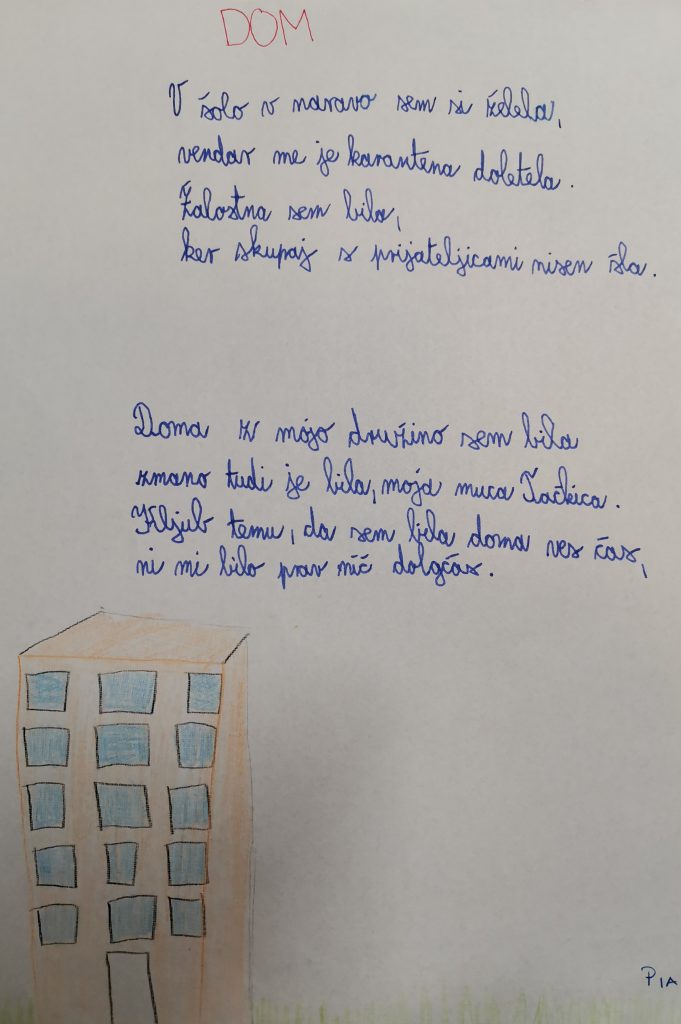 DOM
V šolo v naravo sem si želela,
vendar me je karantena doletela.
Žalostna sem bila,
ker skupaj s prijateljicami nisen šla.
Doma z mojo družino sem bila
zmano tudi je bila, moja muca Tačkica.
Kljub temu, da sem bila doma ves čas,
ni mi bilo prav nič dolgčas.
PIA